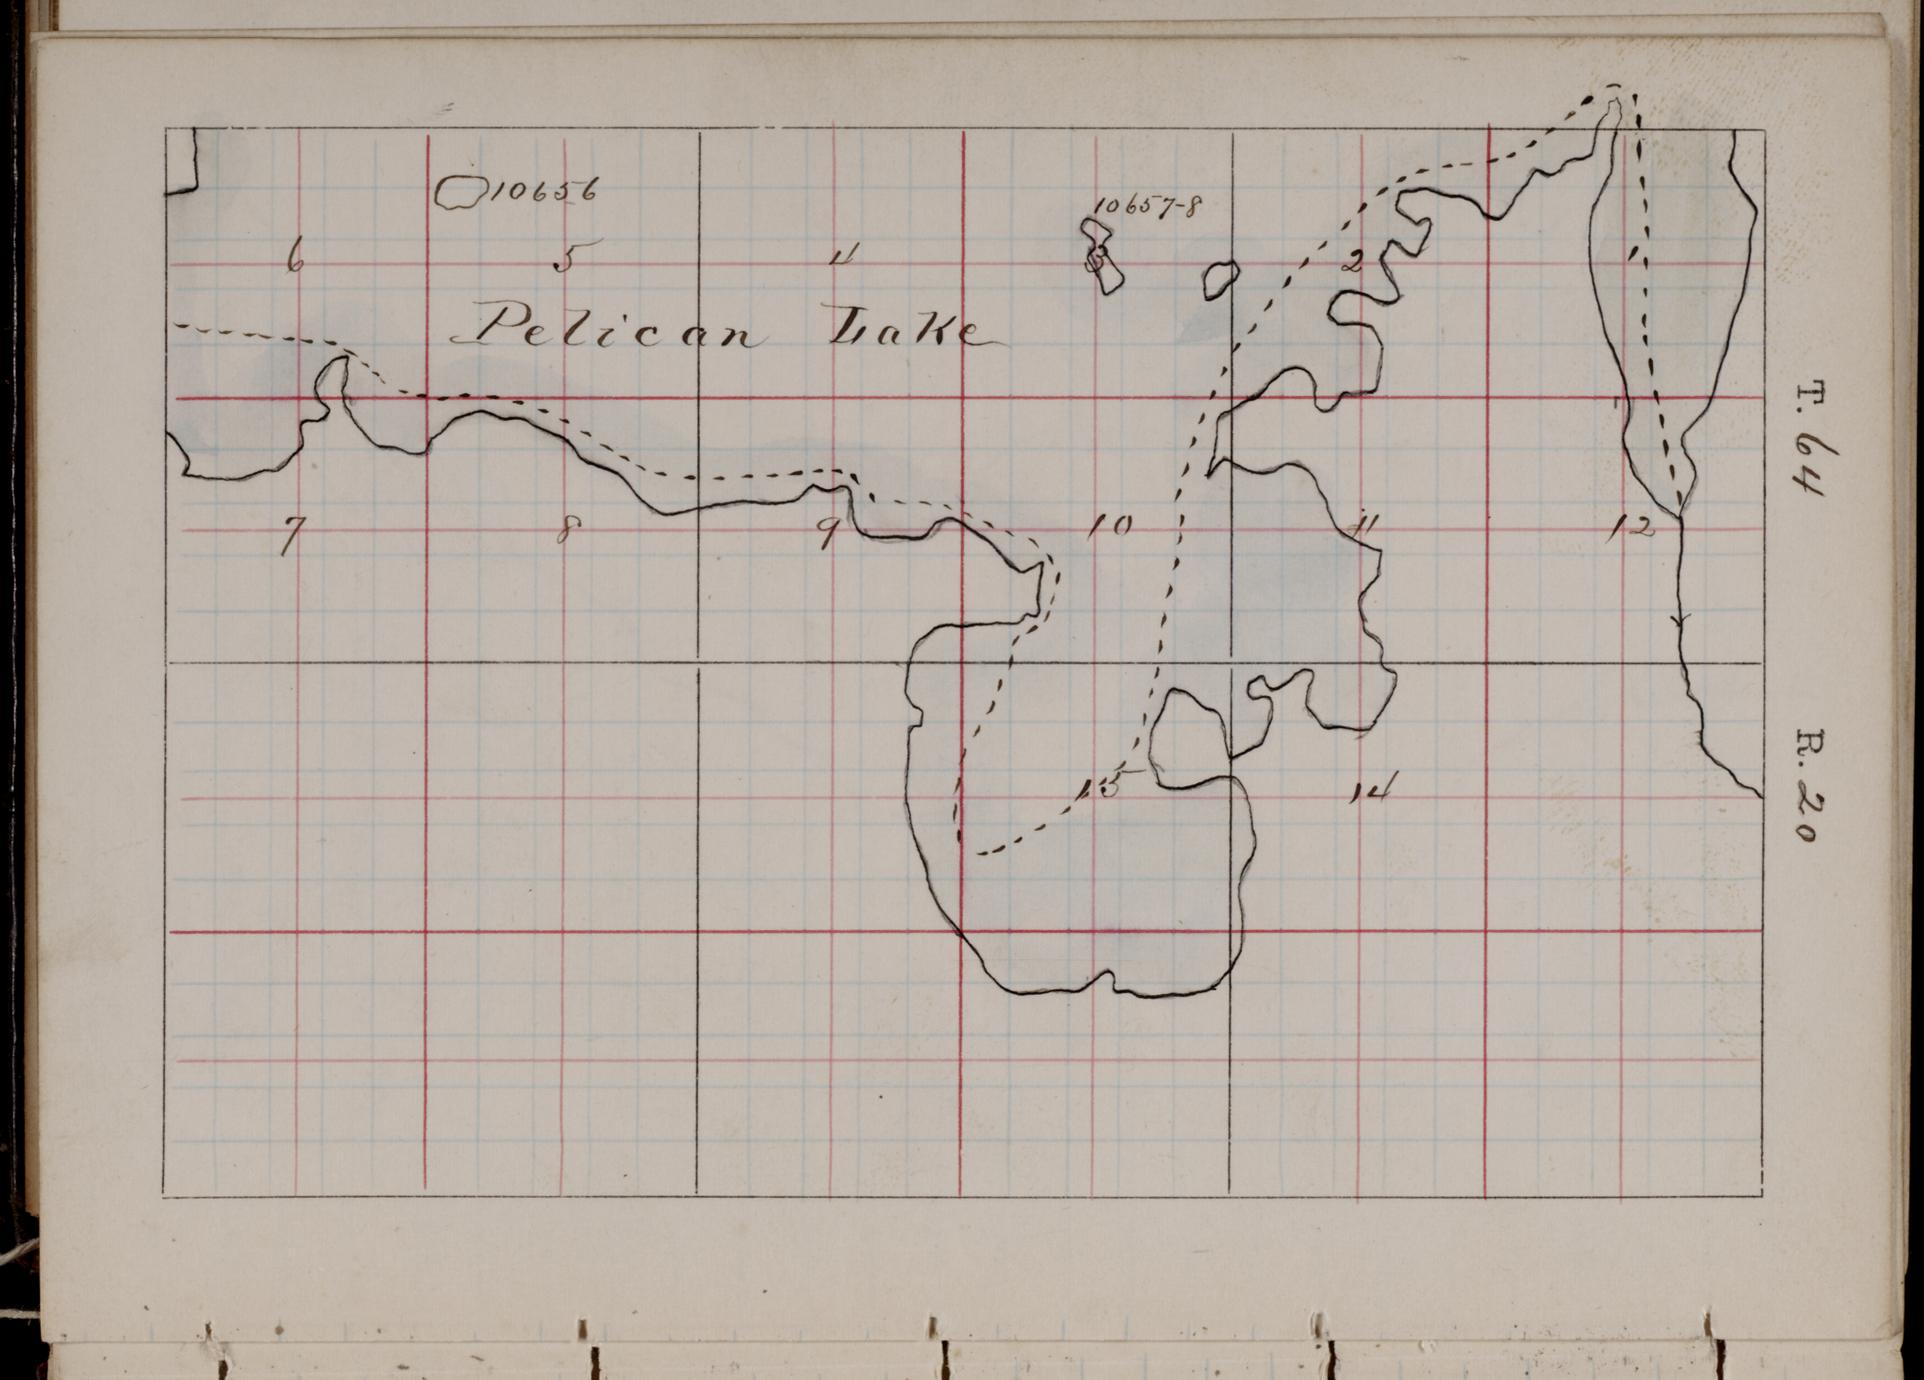 10656
10657-8
6 5 4 3 2 1
Pelican Lake
7 8 9 10 11 12
15 14
T. 64
R. 20